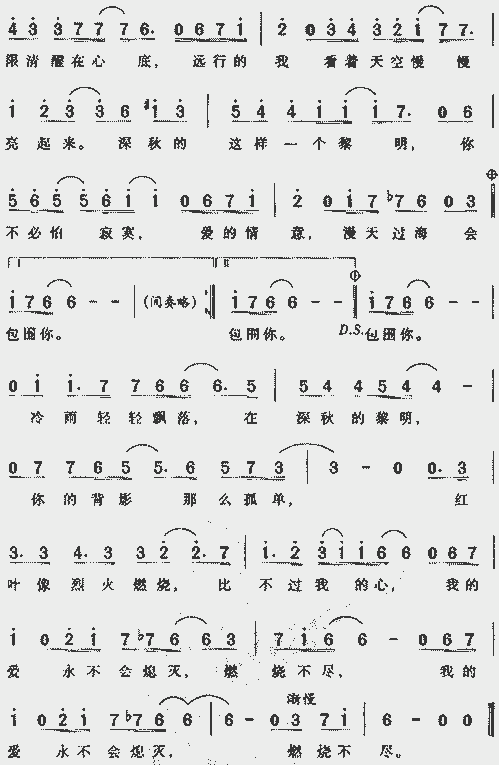 4 3 3 7 7 7 6. 0 6 7 1 | 2 0 3 4 3 2 1 7 7.
限清醒在心底， 远行的 我 看着天空慢 慢
1 2 3 3 6 #1 3 | 5 4 4 1 1 1 7. 0 6
亮 起来。深秋的 这样一个黎 明， 你
5 6 5 5 6 1 1 0 6 7 1 | 2 0 1 7 b7 6 0 3
不必怕 寂寞， 爱的情 意，漫天过海 会
1 7 6 6 - - | (间奏略) :| 1 7 6 6 - - | 1 7 6 6 - -
包围你。 包围你。 D.S. 包围你。
0 1 1. 7 7 6 6 6. 5 | 5 4 4 5 4 4 -
冷雨轻轻飘落， 在 深秋的黎明，
0 7 7 6 5 5. 6 5 7 3 | 3 - 0 0. 3
你的背影 那么孤单， 红
3. 3 4. 3 3 2 2. 7 | 1. 2 3 1 1 6 6 0 6 7
叶像烈火燃烧， 比 不过我 的心， 我的
1 0 2 1 7 b7 6 6 3 | 7 1 6 6 - 0 6 7
爱 永不会熄灭， 燃 烧不尽， 我的
渐慢
1 0 2 1 7 b7 6 6 | 6 - 0 3 7 1 | 6 - 0 0
爱 永不会熄灭， 燃烧不 尽。